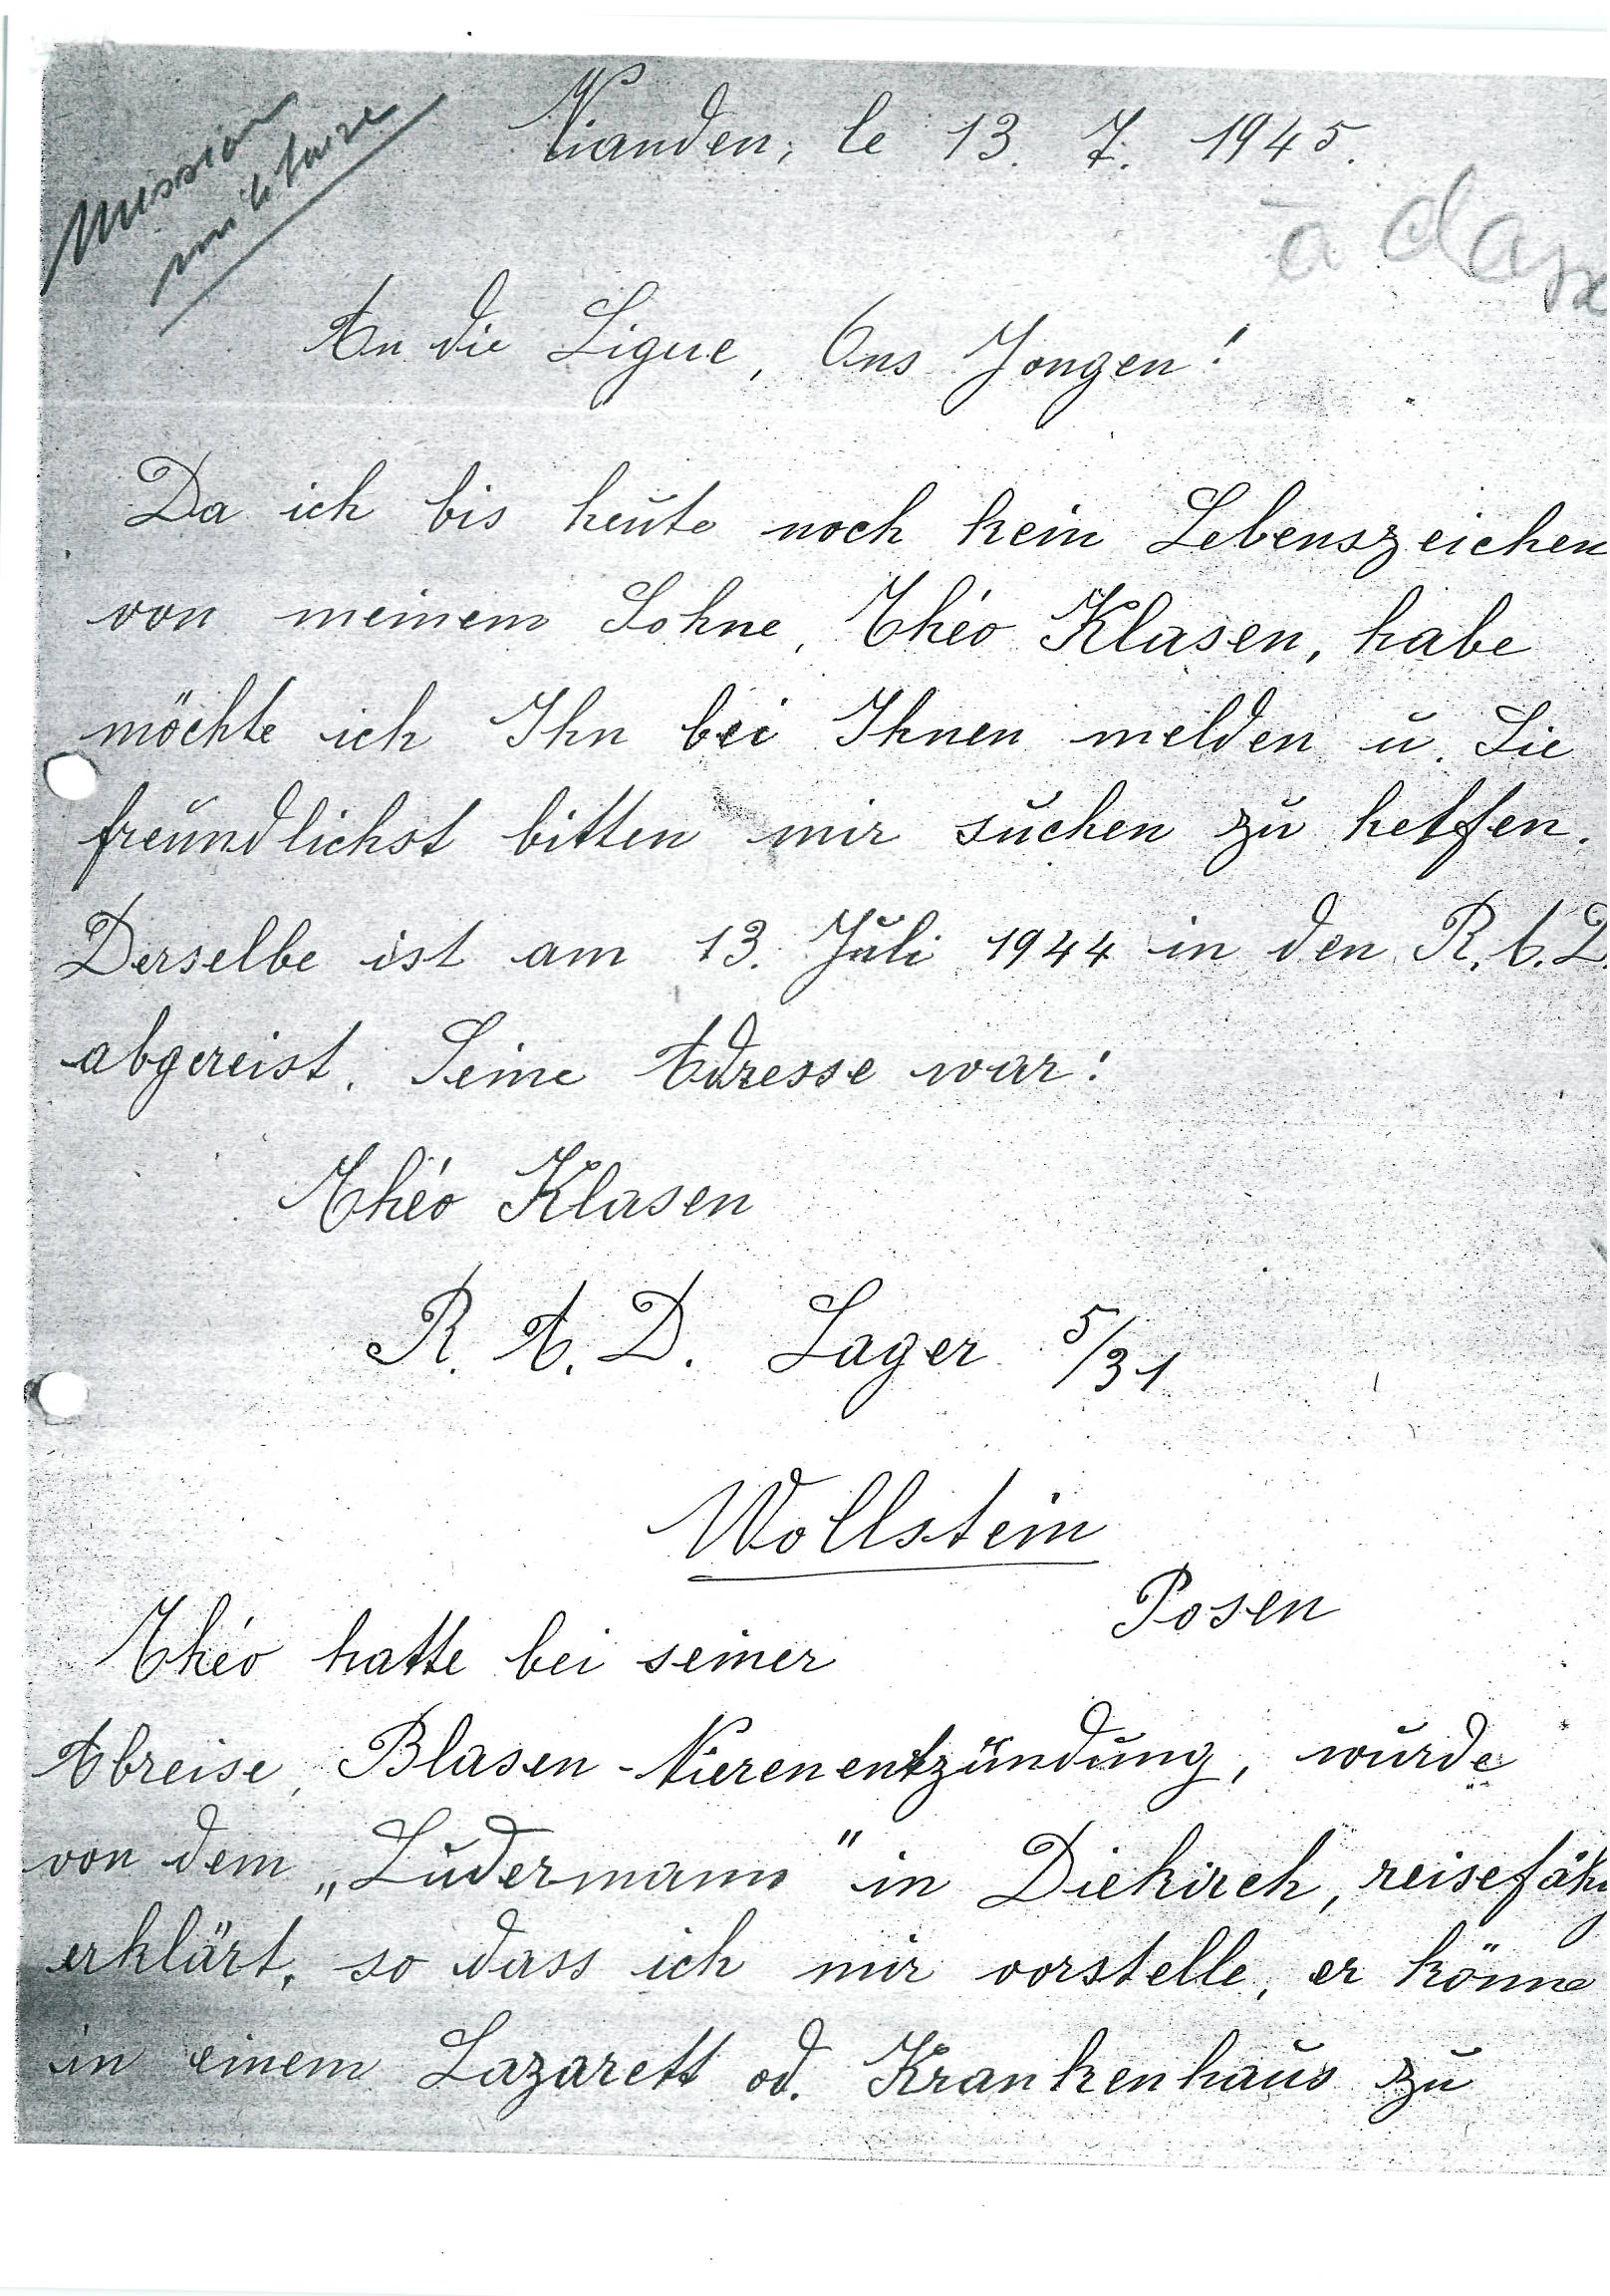 Mission
militaire
Vianden, le 13. 7. 1945.
à
An die Ligue, Ons Jongen!
Da ich bis heute noch kein Lebenszeichen
von meinem Sohne, Théo Klasen, habe
möchte ich Ihn bei Ihnen melden u. Sie
freundlichst bitten mir suchen zu helfen.
Derselbe ist am 13. Juli 1944 in den R. A. D.
abgereist. Seine Adresse war:
Théo Klasen
R. A. D. Lager 5/31
Wollstein
Posen
Théo hatte bei seiner
Abreise, Blasen-Nierenentzündung, wurde
von dem „Ludermann" in Diekirch, reisefähig
erklärt, so dass ich mir vorstelle, er könne
in einem Lazarett od. Krankenhaus zu